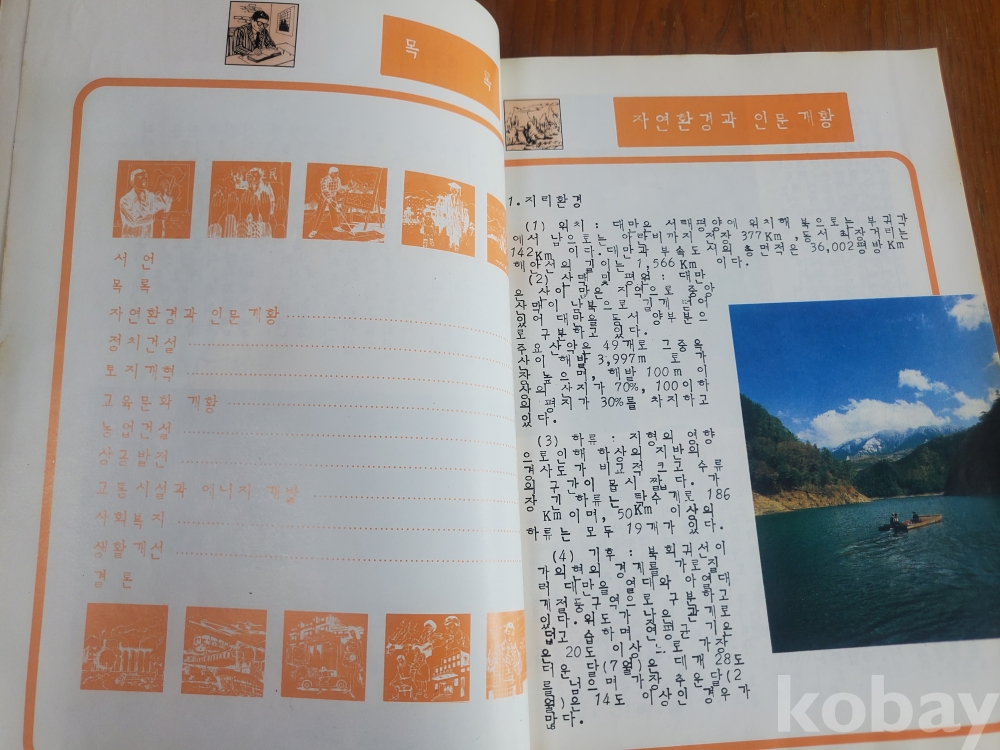 목
자연환경과 인문개황
서 언
목 록
자연환경과 인문개황
정치건설
토지개혁
교육문화 개황
농업건설
상공발전
교통시설과 에너지 개발
사회복지
생활개선
결 론
1. 지리환경
(1) 위치 : 대만은 서태평양에 위치해 북으로는 부귀각
에서 남으로는 까지 377Km, 동서 최장거리는
142Km 이다. 대만과 부속 총면적은 36,002평방Km
해안선의 길이는 1,566Km 이다.
(2) 산맥 및 평원 : 대만
은
산맥이 남북으로
있어
로 대분하고 있다.
주요 산악은 49개로 그중 옥
산이 해발 3,997m 로 가
장 높으며, 해발 100m 이
상의 산지가 70%, 100이하
의 평지가 30%를 차지하고
있다.
(3) 하류 : 지형의 영향
으로 인해 하상의 지반의
경사도가 비교적 크고 수류
의 구간이 몹시 짧다.
장 하류는 탁수계로 186
Km 이며, 50Km 이상의
하류는 모두 19개가 있다.
(4) 기후 : 북회귀선이
가의현의 경계
대만을
고 습도 이상
은 20도 이상
더운 달(7월)은 대개 28도
를 넘으며 가장 추운 달(2
월)은 14도 이상인 경우가
많다.
kobay